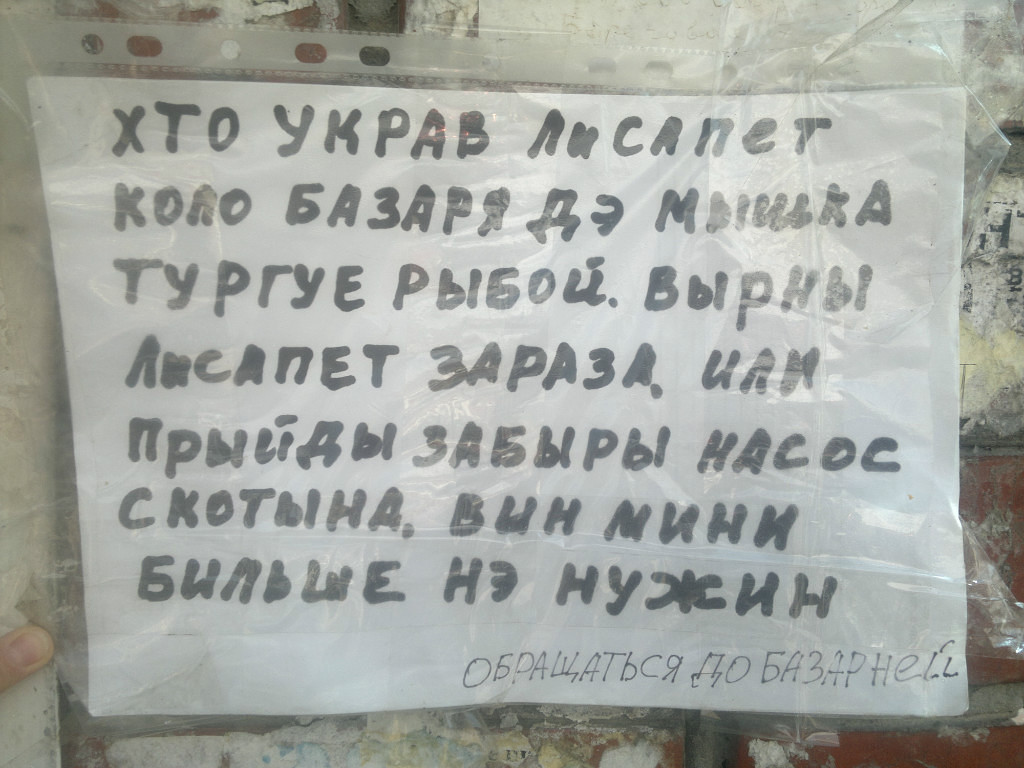 ХТО УКРАВ ЛИСАПЕТ
КОЛО БАЗАРЯ ДЭ МЫШКА
ТУРГУЕ РЫБОЙ. ВЫРНЫ
ЛИСАПЕТ ЗАРАЗА, ИЛИ
ПРЫЙДЫ ЗАБЫРЫ НАСОС
СКОТЫНА. ВИН МИНИ
БИЛЬШЕ НЭ НУЖИН
ОБРАЩАТЬСЯ ДО БАЗАРНЕЙ